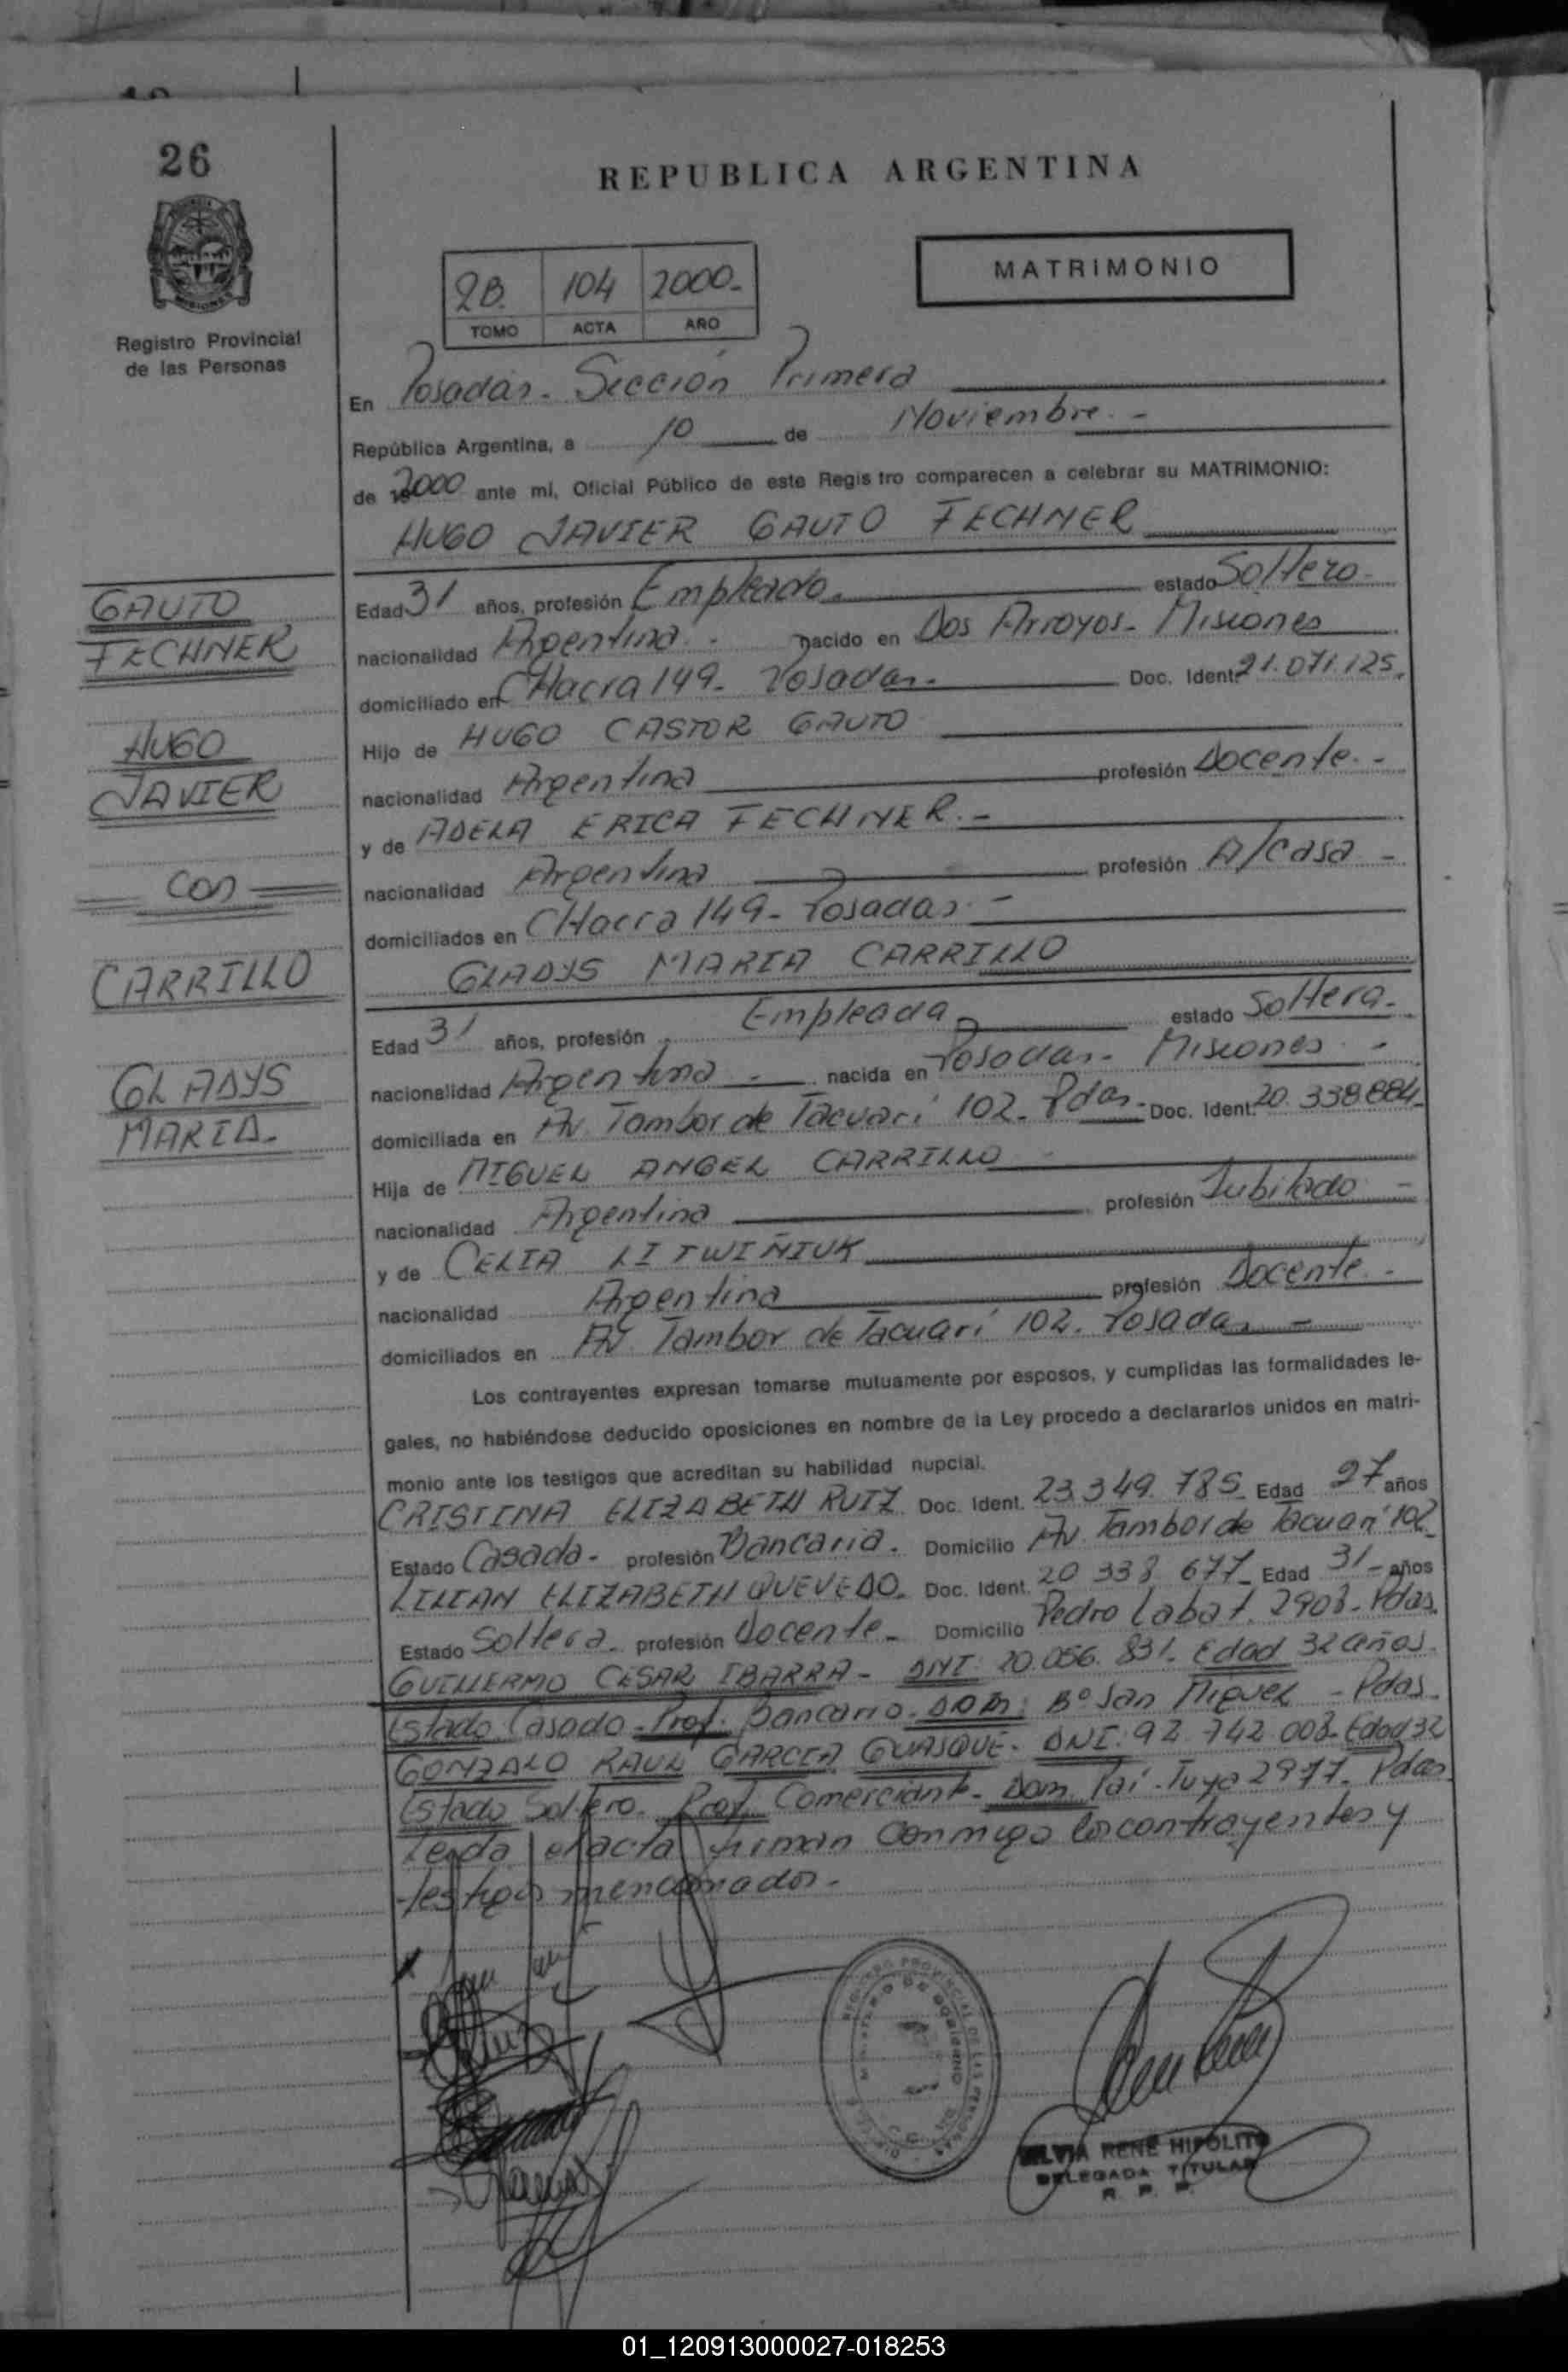 26
REPUBLICA ARGENTINA
MISIONES
Registro Provincial
de las Personas
2B. 104 2000-
TOMO ACTA AÑO
MATRIMONIO
En Posadas - Sección Primera
República Argentina, a 10 de Noviembre. -
de 2000 ante mi, Oficial Público de este Regis tro comparecen a celebrar su MATRIMONIO:
HUGO JAVIER GAUTO FECHNER
GAUTO
FECHNER
HUGO
JAVIER
con
CARRILLO
GLADYS
MARIA-
Edad 31 años, profesión Empleado. estado Soltero-
nacionalidad Argentina. - nacido en Dos Arroyos - Misiones
domiciliado en CHacra 149- Posadas- Doc. Ident. 21.071.125.
Hijo de HUGO CASTOR GAUTO
nacionalidad Argentina profesión Docente. -
y de ADELA ERICA FECHNER. -
nacionalidad Argentina profesión A/casa -
domiciliados en CHacra 149 - Posadas. -
GLADYS MARIA CARRILLO
Edad 31 años, profesión Empleada estado Soltera-
nacionalidad Argentina - nacida en Posadas - Misiones -
domiciliada en Av. Tambor de Tacuarí 102 - Pdas- Doc. Ident. 20.338.884-
Hija de MIGUEL ANGEL CARRILLO -
nacionalidad Argentina profesión Jubilado -
y de CELIA LITWIÑIUK
nacionalidad Argentina profesión Docente. -
domiciliados en Av. Tambor de Tacuarí 102. Posadas -
Los contrayentes expresan tomarse mutuamente por esposos, y cumplidas las formalidades le-
gales, no habiéndose deducido oposiciones en nombre de la Ley procedo a declararlos unidos en matri-
monio ante los testigos que acreditan su habilidad nupcial.
CRISTINA ELIZABETH RUIZ Doc. Ident. 23.349.785- Edad 27 años
Estado Casada- profesión Bancaria. Domicilio Av. Tambor de Tacuarí 102-
LILIAN ELIZABETH QUEVEDO. Doc. Ident. 20 338 677- Edad 31- años
Estado Soltera- profesión Docente- Domicilio Pedro Labat. 2903- Pdas.
GUILLERMO CESAR IBARRA - DNI: 20.056.831- Edad 32 años.
Estado Casado - Prof. Bancario. DOM: Bº San Miguel - Pdas.
GONZALO RAUL GARCIA GUASQUE- DNI: 92.742.003- Edad 32
Estado Soltero. Prof. Comerciante- Dom. Paí-Tuya 2977- Pdas
Leida el acta firman conmigo los contrayentes y
testigos mencionados-
REGISTRO PROVINCIAL DE LAS PERSONAS
SILVIA RENE HIPOLITO
DELEGADA TITULAR
R. P. P.
01_120913000027-018253